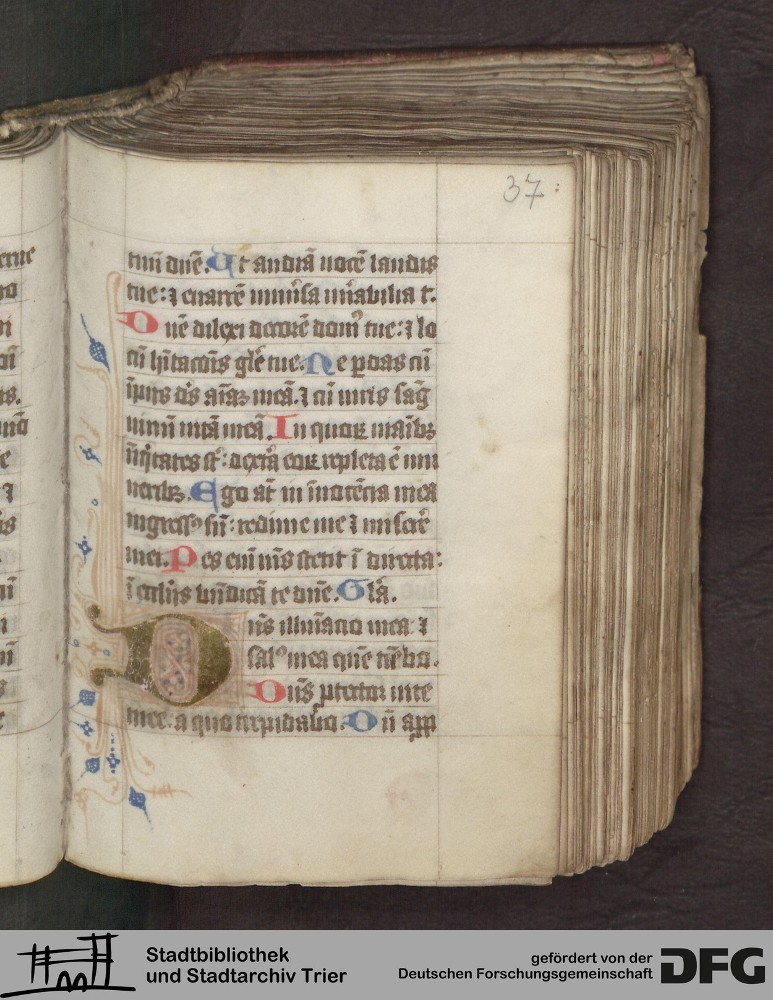 37
tuū dn̄e. Ut audiā vocē laudis
tue: ⁊ enarrē uniu͛sa mirabilia t.
Dn̄e dilexi decorē dom͛ tue: ⁊ lo
cū hītacōis glē tue. Ne perdas cū
īpiis ds̄ aīaꝫ meā. ⁊ cū viris sāḡ
uinū vitā meā. In quoꝝ maīb₉
īiq̄tates st̄: dext͛a eoꝝ repleta ē mu
nerib₉. Ego at̄ in īnocēcia mea
ingress₉ sū: redime me ⁊ miser͛e
mei. Pes eni͛ m͛s stetit ī directa:
ī eccl͛iis bn̄dicā te dn̄e. Glā.
Dn̄s illuīatio mea ⁊
sal₉ mea quē ti͛ebo.
Dn̄s ꝓtector vite
mee: a quo trepidabo. Dū app̄
Stadtbibliothek
und Stadtarchiv Trier
gefördert von der
Deutschen Forschungsgemeinschaft DFG